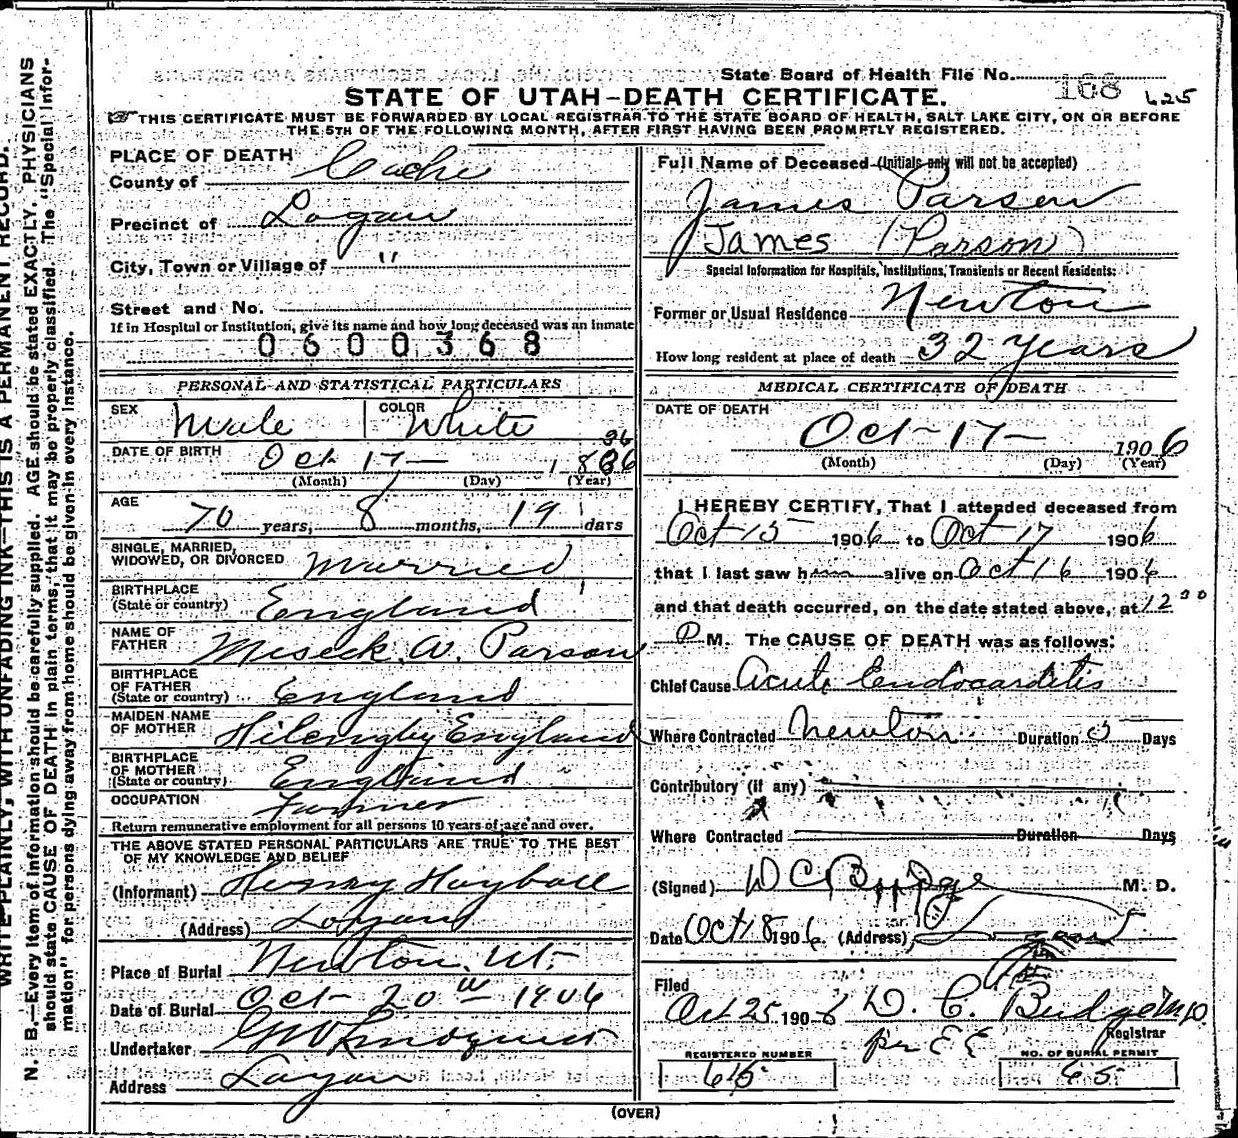 State Board of Health File No. 168 625
STATE OF UTAH-DEATH CERTIFICATE.
THIS CERTIFICATE MUST BE FORWARDED BY LOCAL REGISTRAR TO THE STATE BOARD OF HEALTH, SALT LAKE CITY, ON OR BEFORE
THE 5TH OF THE FOLLOWING MONTH, AFTER FIRST HAVING BEEN PROMPTLY REGISTERED.
PLACE OF DEATH
County of Cache
Precinct of Logan
City, Town or Village of "
Street and No.
If in Hospital or Institution, give its name and how long deceased was an inmate
0600368
PERSONAL AND STATISTICAL PARTICULARS
SEX Male COLOR White
DATE OF BIRTH Oct 17 — 1,836 36
(Month) (Day) (Year)
AGE 70 years, 8 months, 19 days
SINGLE, MARRIED,
WIDOWED, OR DIVORCED Married
BIRTHPLACE
(State or country) England
NAME OF
FATHER Miseck W. Parson
BIRTHPLACE
OF FATHER
(State or country) England
MAIDEN NAME
OF MOTHER England
BIRTHPLACE
OF MOTHER
(State or country) England
OCCUPATION Farmer
Return remunerative employment for all persons 10 years of age and over.
THE ABOVE STATED PERSONAL PARTICULARS ARE TRUE TO THE BEST
OF MY KNOWLEDGE AND BELIEF
(Informant) Henry Hayball
(Address) Logan
Place of Burial Newton, Ut.
Date of Burial Oct 20th 1906
Undertaker Lindquist
Address Logan
Full Name of Deceased (Initials only will not be accepted)
James Parsen
James (Parson)
Special Information for Hospitals, Institutions, Transients or Recent Residents:
Former or Usual Residence Newton
How long resident at place of death 32 years
MEDICAL CERTIFICATE OF DEATH
DATE OF DEATH
Oct — 17 — 1906
(Month) (Day) (Year)
I HEREBY CERTIFY, That I attended deceased from
Oct 15 1906 to Oct 17 1906
that I last saw him alive on Oct 16 1906
and that death occurred, on the date stated above, at 12 00
P M. The CAUSE OF DEATH was as follows:
Chief Cause Acute Endocarditis
Where Contracted Newton Duration 5 Days
Contributory (if any)
Where Contracted Duration Days
(Signed) D C Budge M. D.
Date Oct 18 1906 (Address) Logan
Filed
Oct 25 1906 D. C. Budge M.D.
Registrar
per E E
REGISTERED NUMBER
NO. OF BURIAL PERMIT
65
(OVER)
WRITE PLAINLY, WITH UNFADING INK—THIS IS A PERMANENT RECORD.
N. B.—Every item of information should be carefully supplied. AGE should be stated EXACTLY. PHYSICIANS
should state CAUSE OF DEATH in plain terms, that it may be properly classified. The "Special Infor-
mation" for persons dying away from home should be given in every instance.